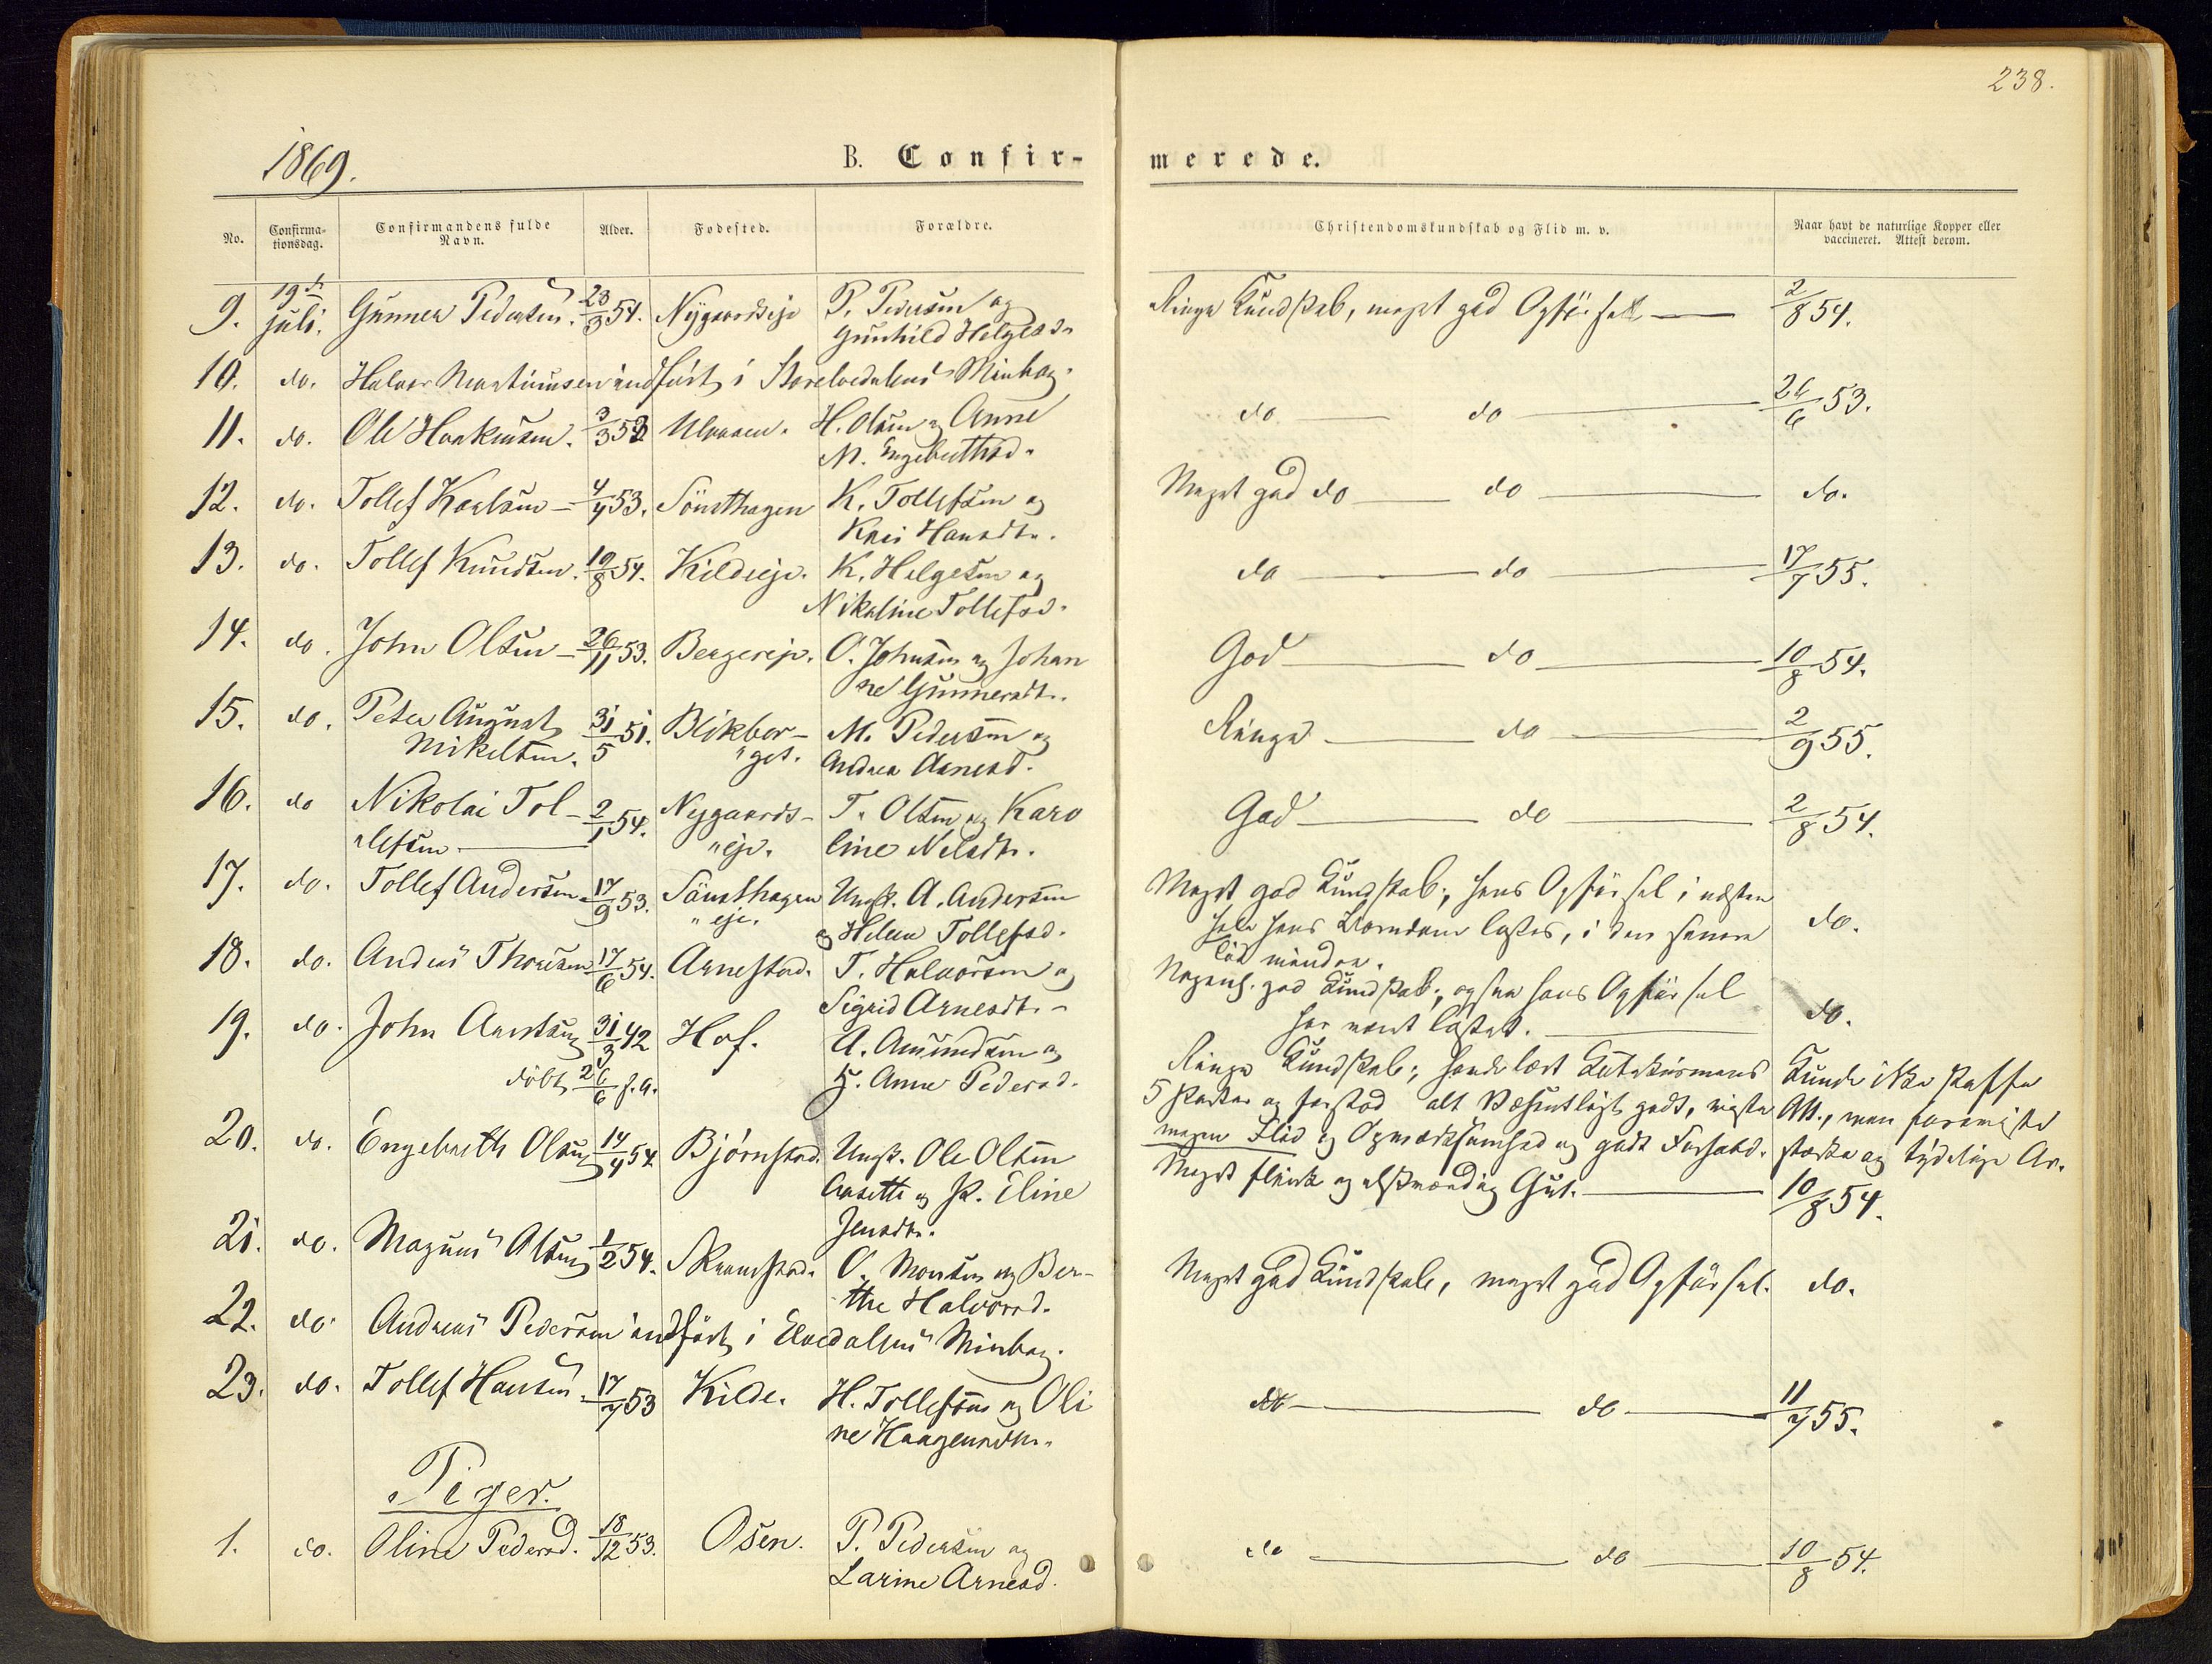 238.
1869.
B. Confir-
merede.
No.
Confirma-
tionsdag.
Confirmandens fulde
Navn.
Alder.
Fødested.
Forældre.
Christendomskundskab og Flid m. v.
Naar havt de naturlige Kopper eller
vaccineret. Attest derom.
9. 19de Juli. Gunner Pedersen. 23/3 54. Nygaardseje P. Pedersen og
Gunhild Helgesd. Ringe Kundskab, meget god Opførsel 2/8 54.
10. do. Halvor Martinusen indført i Storelvedalens Minbog.
11. do. Ole Haakensen. 3/3 53 Ulvaaen. H. Olsen og Anne
M. Engebrethsd. do do 26/6 53.
12. do. Tollef Karlsen 4/4 53. Sönsthagen K. Tollefsen og
Kari Hansdtr. Meget god do do do.
13. do. Tollef Knudsen. 19/8 54. Kildeeje. K. Helgesen og
Nikoline Tollefsd. do do 17/7 55.
14. do. John Olsen 26/11 53. Bergereje. O. Johnsen og Johan
ne Gunnersdt. God do 10/8 54.
15. do. Peter August 31/5 51. Blikber- M. Pedersen og
Mikelsen. "get. Andrea Arnesd. Ringe do 2/9 55.
16. do Nikolai Tol- 2/1 54. Nygaards- T. Olsen og Karo
"lefsen "eje. line Nelsdtr. God do 2/8 54.
17. do. Tollef Andersen 17/9 53. Sönsthagen Ungk. A. Andersen
"eje. og Helene Tollefsd. Meget god Kundskab; hans Opførsel i næsten
hele hans Barndom lastes, i den senere do.
Tid mindre.
18. do. Andreas Thoresen 17/6 54. Arnestad. T. Halvorsen og
Sigrid Arnesdt. Nogenl. god Kundskab; ogsaa hans Opførsel
har været lastet. do.
19. do. John Arntsen 31/3 42 Hof. A. Amundsen og
døbt 26/6 s. a. H. Anne Pedersd. Ringe Kundskab; havde lært Katekismens Kunde ikke skaffe
5 Parter og forstod alt Væsentligt godt, viste Att., men foreviste
megen Flid og Opmærksomhed og godt Forhold. stærke og tydelige Ar.
20. do. Engebreth Olsen 14/4 54 Bjørnstad. Ungk. Ole Olsen
Aasetté og P. Eline
Jensdtr. Meget flink og elskværdig Gut. 10/8 54.
21. do. Magnus Olsen 1/2 54. Skramstad. O. Monsen og Ber-
the Halvorsd. Meget god Kundskab, meget god Opførsel. do.
22. do. Andreas Pedersen indført i Elvedalens Minbog.
23. do. Tollef Hansen 17/7 53 Kilde. H. Tollefsen og Oli
ne Haagensdtr. do do 11/7 55.
Piger.
1. do. Oline Pedersd. 18/12 53. Osen. P. Pedersen og
Larine Arnesd. do do 10/8 54.